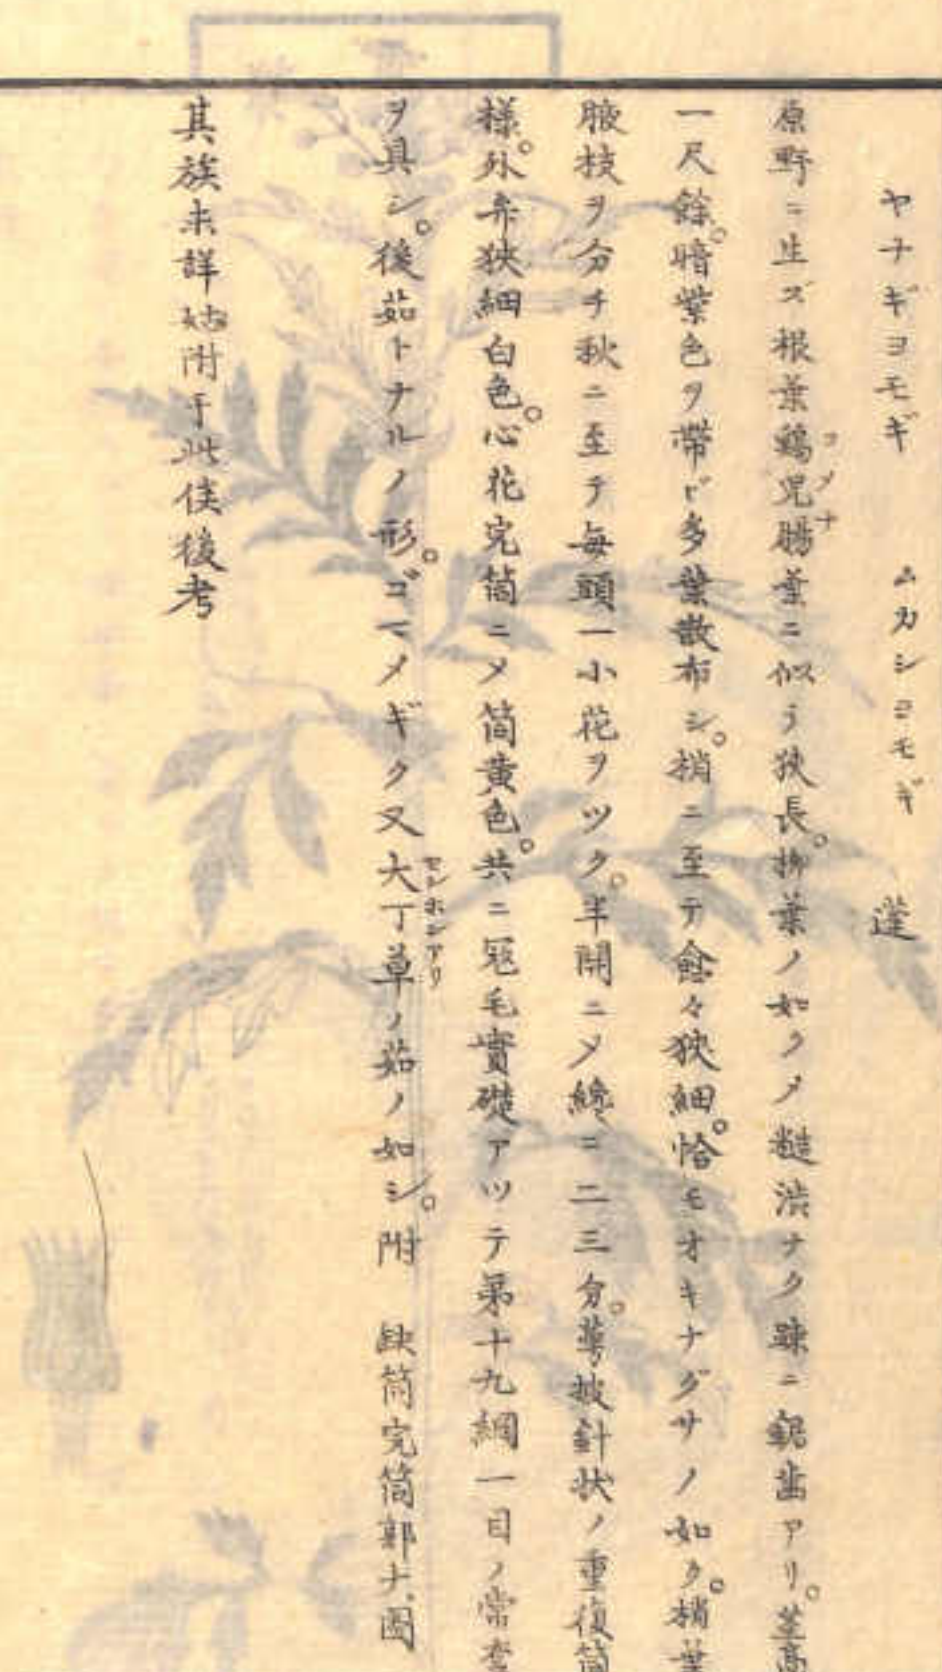 ヤナギヨモギ ムカシヨモギ 蓬
原野ニ生ズ根葉鷄児腸葉ニ似テ狹長。柳葉ノ如クメ糙渋ナク疎ニ鋸歯アリ。茎高
ヨメナ
一尺餘。暗紫色ヲ帯ビ多葉散布シ。梢ニ至テ愈々狹細。恰モオキナグサノ如ク。梢葉
腋枝ヲ分チ秋ニ至テ毎頭一小花ヲツク。半開ニメ纔ニ二三分。萼披針状ノ重復筒
様。外弁狹細白色。心花完筒ニメ筒黄色。共ニ冠毛實礎アツテ第十九綱一目ノ常套
ヲ具シ。後茹トナルノ形。ゴマメギク又大丁草ノ茹ノ如シ。附 缺筒完筒郭大圖
センボンアリ
其族未詳姑附于此俟後考